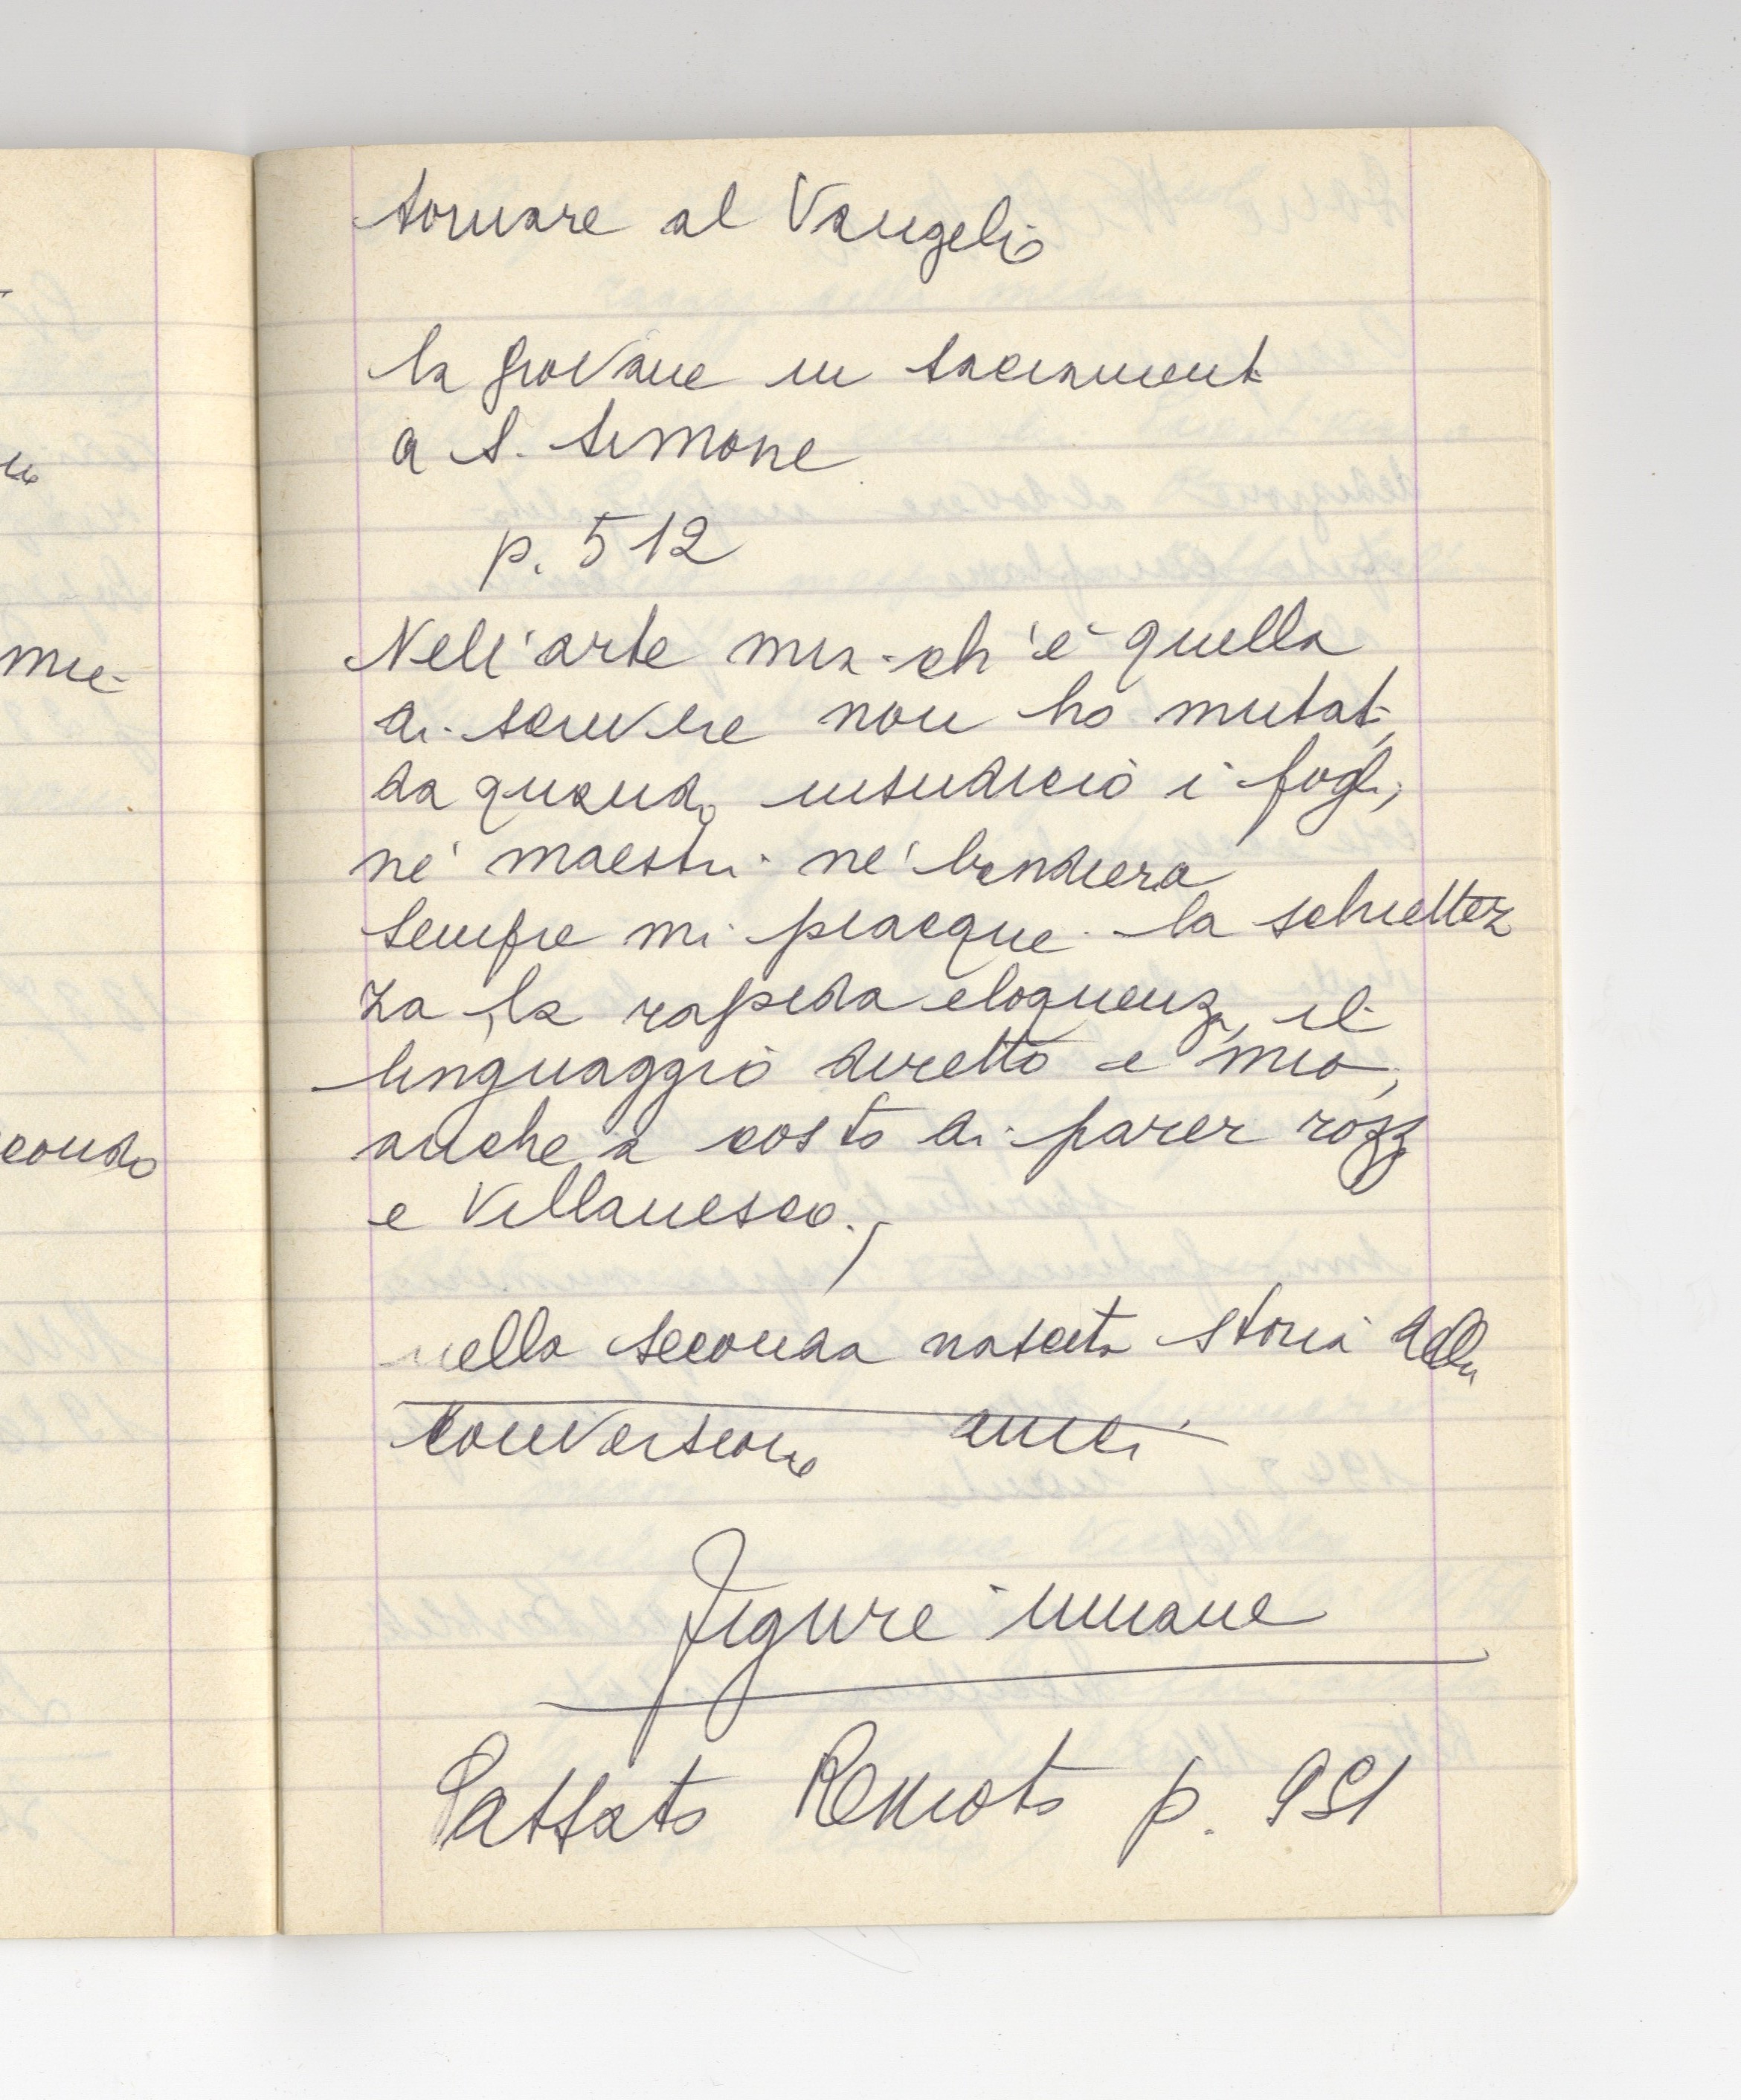 tornare al Vangelo
la giovane in sacrament
a S. Simone
p. 512
Nell'arte mia - ch'è quella
di scrivere non ho mutat,
da quando insudicio i fogli,
né maestri né bandiera
Sempre mi piacque la schiettez
za, la rapida eloquenza, il
linguaggio diretto e mio,
anche a costo di parer rozzo
e villanesco.
nella seconda nascita storia della
conversione amici
Figure umane
Passato Remoto p. 951
mie-
condo